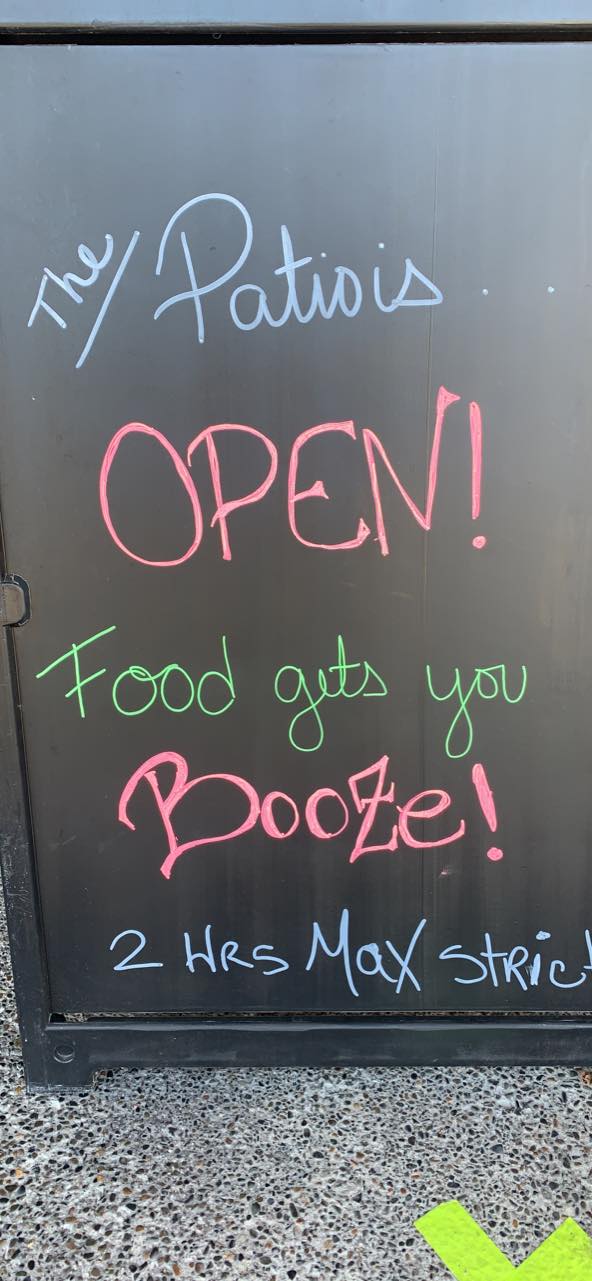 The/Patiois . . 
OPEN!
Food gets you
Booze!
2 HRS Max strict